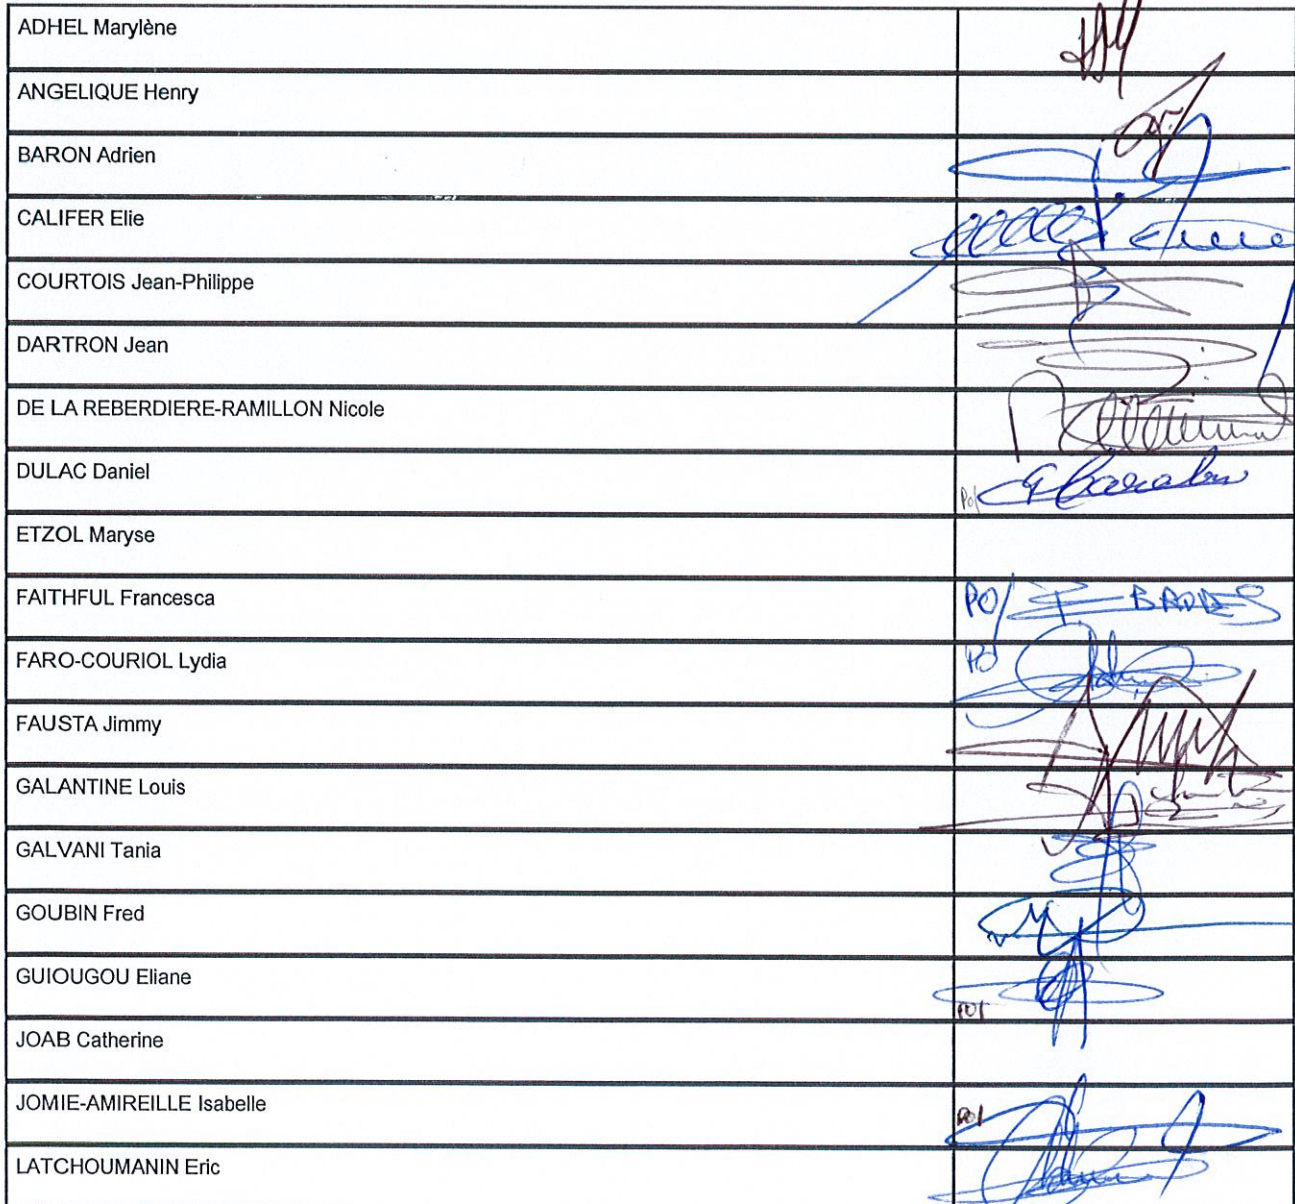 ADHEL Marylène
ANGELIQUE Henry
BARON Adrien
CALIFER Elie
COURTOIS Jean-Philippe
DARTRON Jean
DE LA REBERDIERE-RAMILLON Nicole
DULAC Daniel
Po/
ETZOL Maryse
FAITHFUL Francesca
PO/
FARO-COURIOL Lydia
PO
FAUSTA Jimmy
GALANTINE Louis
GALVANI Tania
GOUBIN Fred
GUIOUGOU Eliane
PO/
JOAB Catherine
JOMIE-AMIREILLE Isabelle
PO/
LATCHOUMANIN Eric